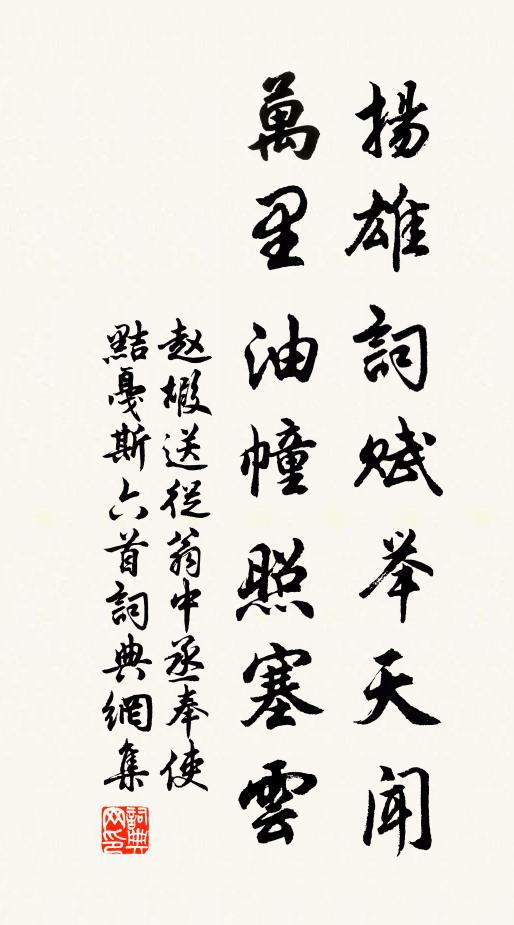 揚雄詞赋举天闻
萬里油幢照塞雲
赵嘏送從翁中丞奉使
黠戛斯六首詞典網集
詞典网印